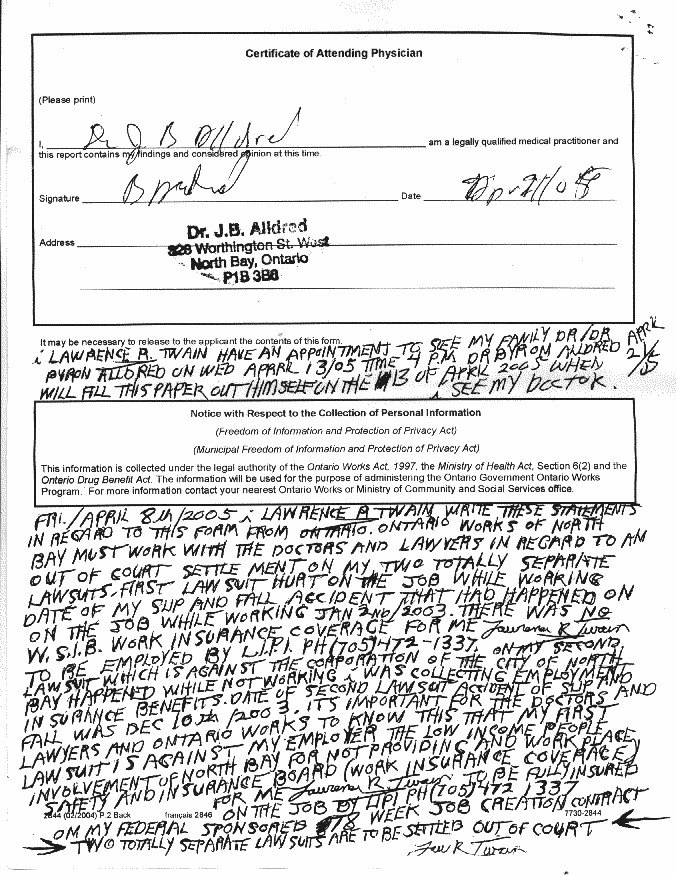 Certificate of Attending Physician
(Please print)
I, Dr J B Alldred am a legally qualified medical practitioner and
this report contains my findings and considered opinion at this time
Signature Date
Dr. J.B. Alldred
Address 326 Worthington St. West
North Bay, Ontario
P1B 3B6
It may be necessary to release to the applicant the contents of this form.
i LAWRENCE R. TWAIN HAVE AN APPOINTMENT TO SEE MY FAMILY DR/DR
BYRON ALLDRED ON WED APRIL 13/05 TIME 4 P.M. DR BYRON ALLDRED APRIL 21/05
WILL FILL THIS PAPER OUT HIMSELF ON THE 13 OF APRIL 2005 WHEN i SEE MY DOCTOR.
Notice with Respect to the Collection of Personal Information
(Freedom of Information and Protection of Privacy Act)
(Municipal Freedom of Information and Protection of Privacy Act)
This information is collected under the legal authority of the Ontario Works Act, 1997, the Ministry of Health Act, Section 6(2) and the
Ontario Drug Benefit Act. The information will be used for the purpose of administering the Ontario Government Ontario Works
Program. For more information contact your nearest Ontario Works or Ministry of Community and Social Services office.
FRI./APRIL 8th/2005 i LAWRENCE R TWAIN WRITE THESE STATEMENTS
IN REGARD TO THIS FORM FROM ONTARIO. ONTARIO WORKS OF NORTH
BAY MUST WORK WITH THE DOCTORS AND LAWYERS IN REGARD TO AN
OUT OF COURT SETTLE MENT ON MY TWO TOTALLY SEPARATE
LAWSUITS. FIRST LAW SUIT HURT ON THE JOB WHILE WORKING
DATE OF MY SLIP AND FALL ACCIDENT THAT HAD HAPPENED ON
ON THE JOB WHILE WORKING JAN 2nd/2003. THERE WAS NO
W.S.I.B. WORK INSURANCE COVERAGE FOR ME Lawrence R Twain
TO BE EMPLOYED BY L.I.P.I. PH (705) 472-1337. ON MY SECOND
LAW SUIT WHICH IS AGAINST THE CORPORATION OF THE CITY OF NORTH
BAY HAPPENED WHILE NOT WORKING i WAS COLLECTING EMPLOYMENT
INSURANCE BENEFITS. DATE OF SECOND LAWSUIT ACCIDENT OF SLIP AND
FALL WAS DEC 10th/2003. IT'S IMPORTANT FOR THE DOCTORS AND
LAWYERS AND ONTARIO WORKS TO KNOW THIS THAT MY FIRST
LAW SUIT IS AGAINST MY EMPLOYER THE LOW INCOME PEOPLE
INVOLVEMENT OF NORTH BAY FOR NOT PROVIDING AND WORK PLACE
SAFETY AND INSURANCE BOARD (WORK INSURANCE COVERAGE)
FOR ME Lawrence R Twain TO BE FULLY INSURED
ON THE JOB BY LIPI PH (705) 472 1337
2844 (02/2004) P.2 Back français 2846 7730-2844
ON MY FEDERAL SPONSORED 78 WEEK JOB CREATION CONTRACT
TWO TOTALLY SEPARATE LAW SUITS ARE TO BE SETTLED OUT OF COURT
Law R Twain